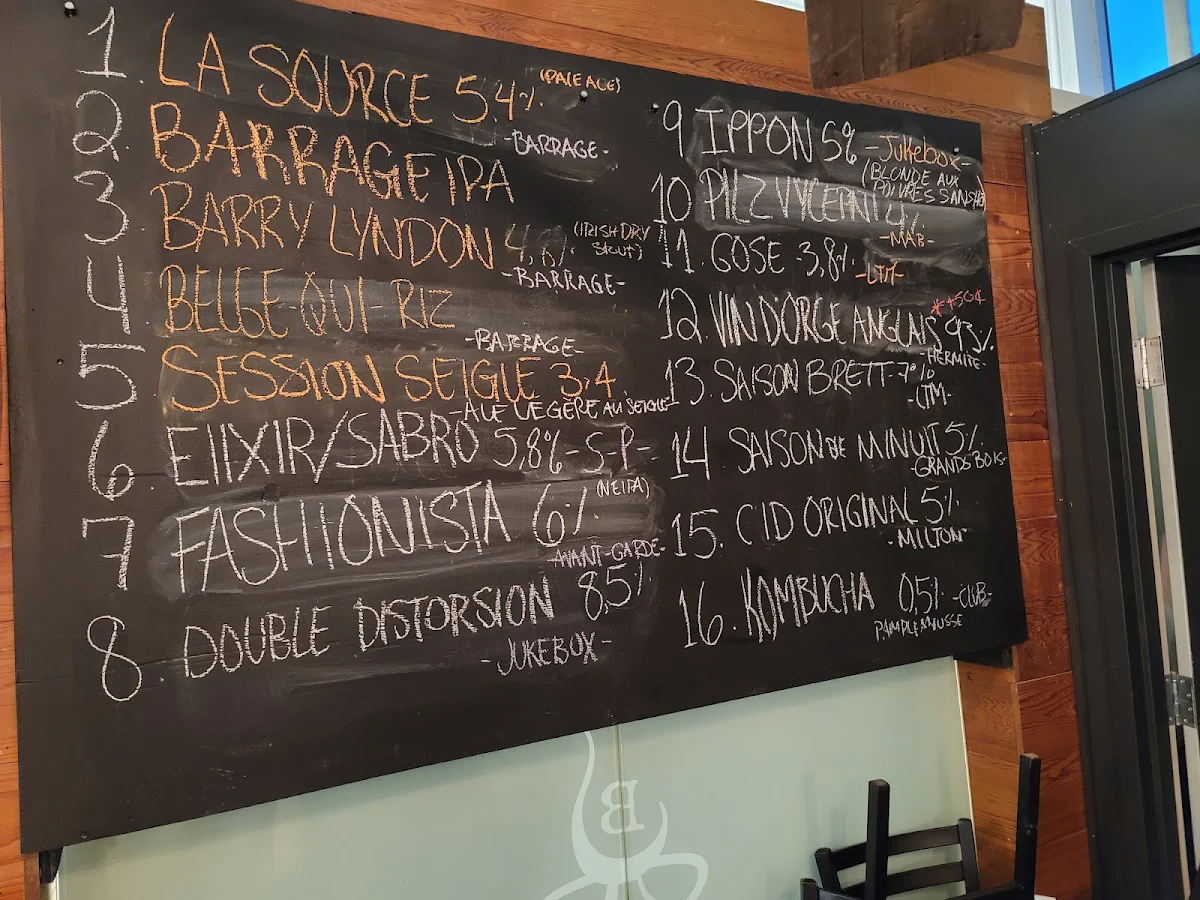 1. LA SOURCE 5.4% (PALE ALE)
- BARRAGE -
2. BARRAGE IPA
3. BARRY LYNDON 4,8% (IRISH DRY STOUT)
- BARRAGE -
4 BELGE-QUI-RIZ
- BARRAGE -
5 SESSION SEIGLE 3,4
- ALE LÉGÈRE AU SEIGLE
6 ELIXIR/SABRO 5,8% - S-P-
7 FASHIONISTA 6% (NEIPA)
- AVANT-GARDE -
8 DOUBLE DISTORSION 8,5%
- JUKEBOX -
9 IPPON 5% - Jukebox -
(BLONDE AUX
POIVRES
10 PILZ VYCEPNI 4%
- MAB -
11. GOSE - 3,8%
12. VIN D'ORGE ANGLAIS 9,3%
- HERMITE -
13. SAISON BRETT - 7%
14 SAISON DE MINUIT 5%
- GRANDS BOIS -
15. CID ORIGINAL 5%
- MILTON -
16. KOMBUCHA 0,5% - CLUB -
PAMPLEMOUSSE
B